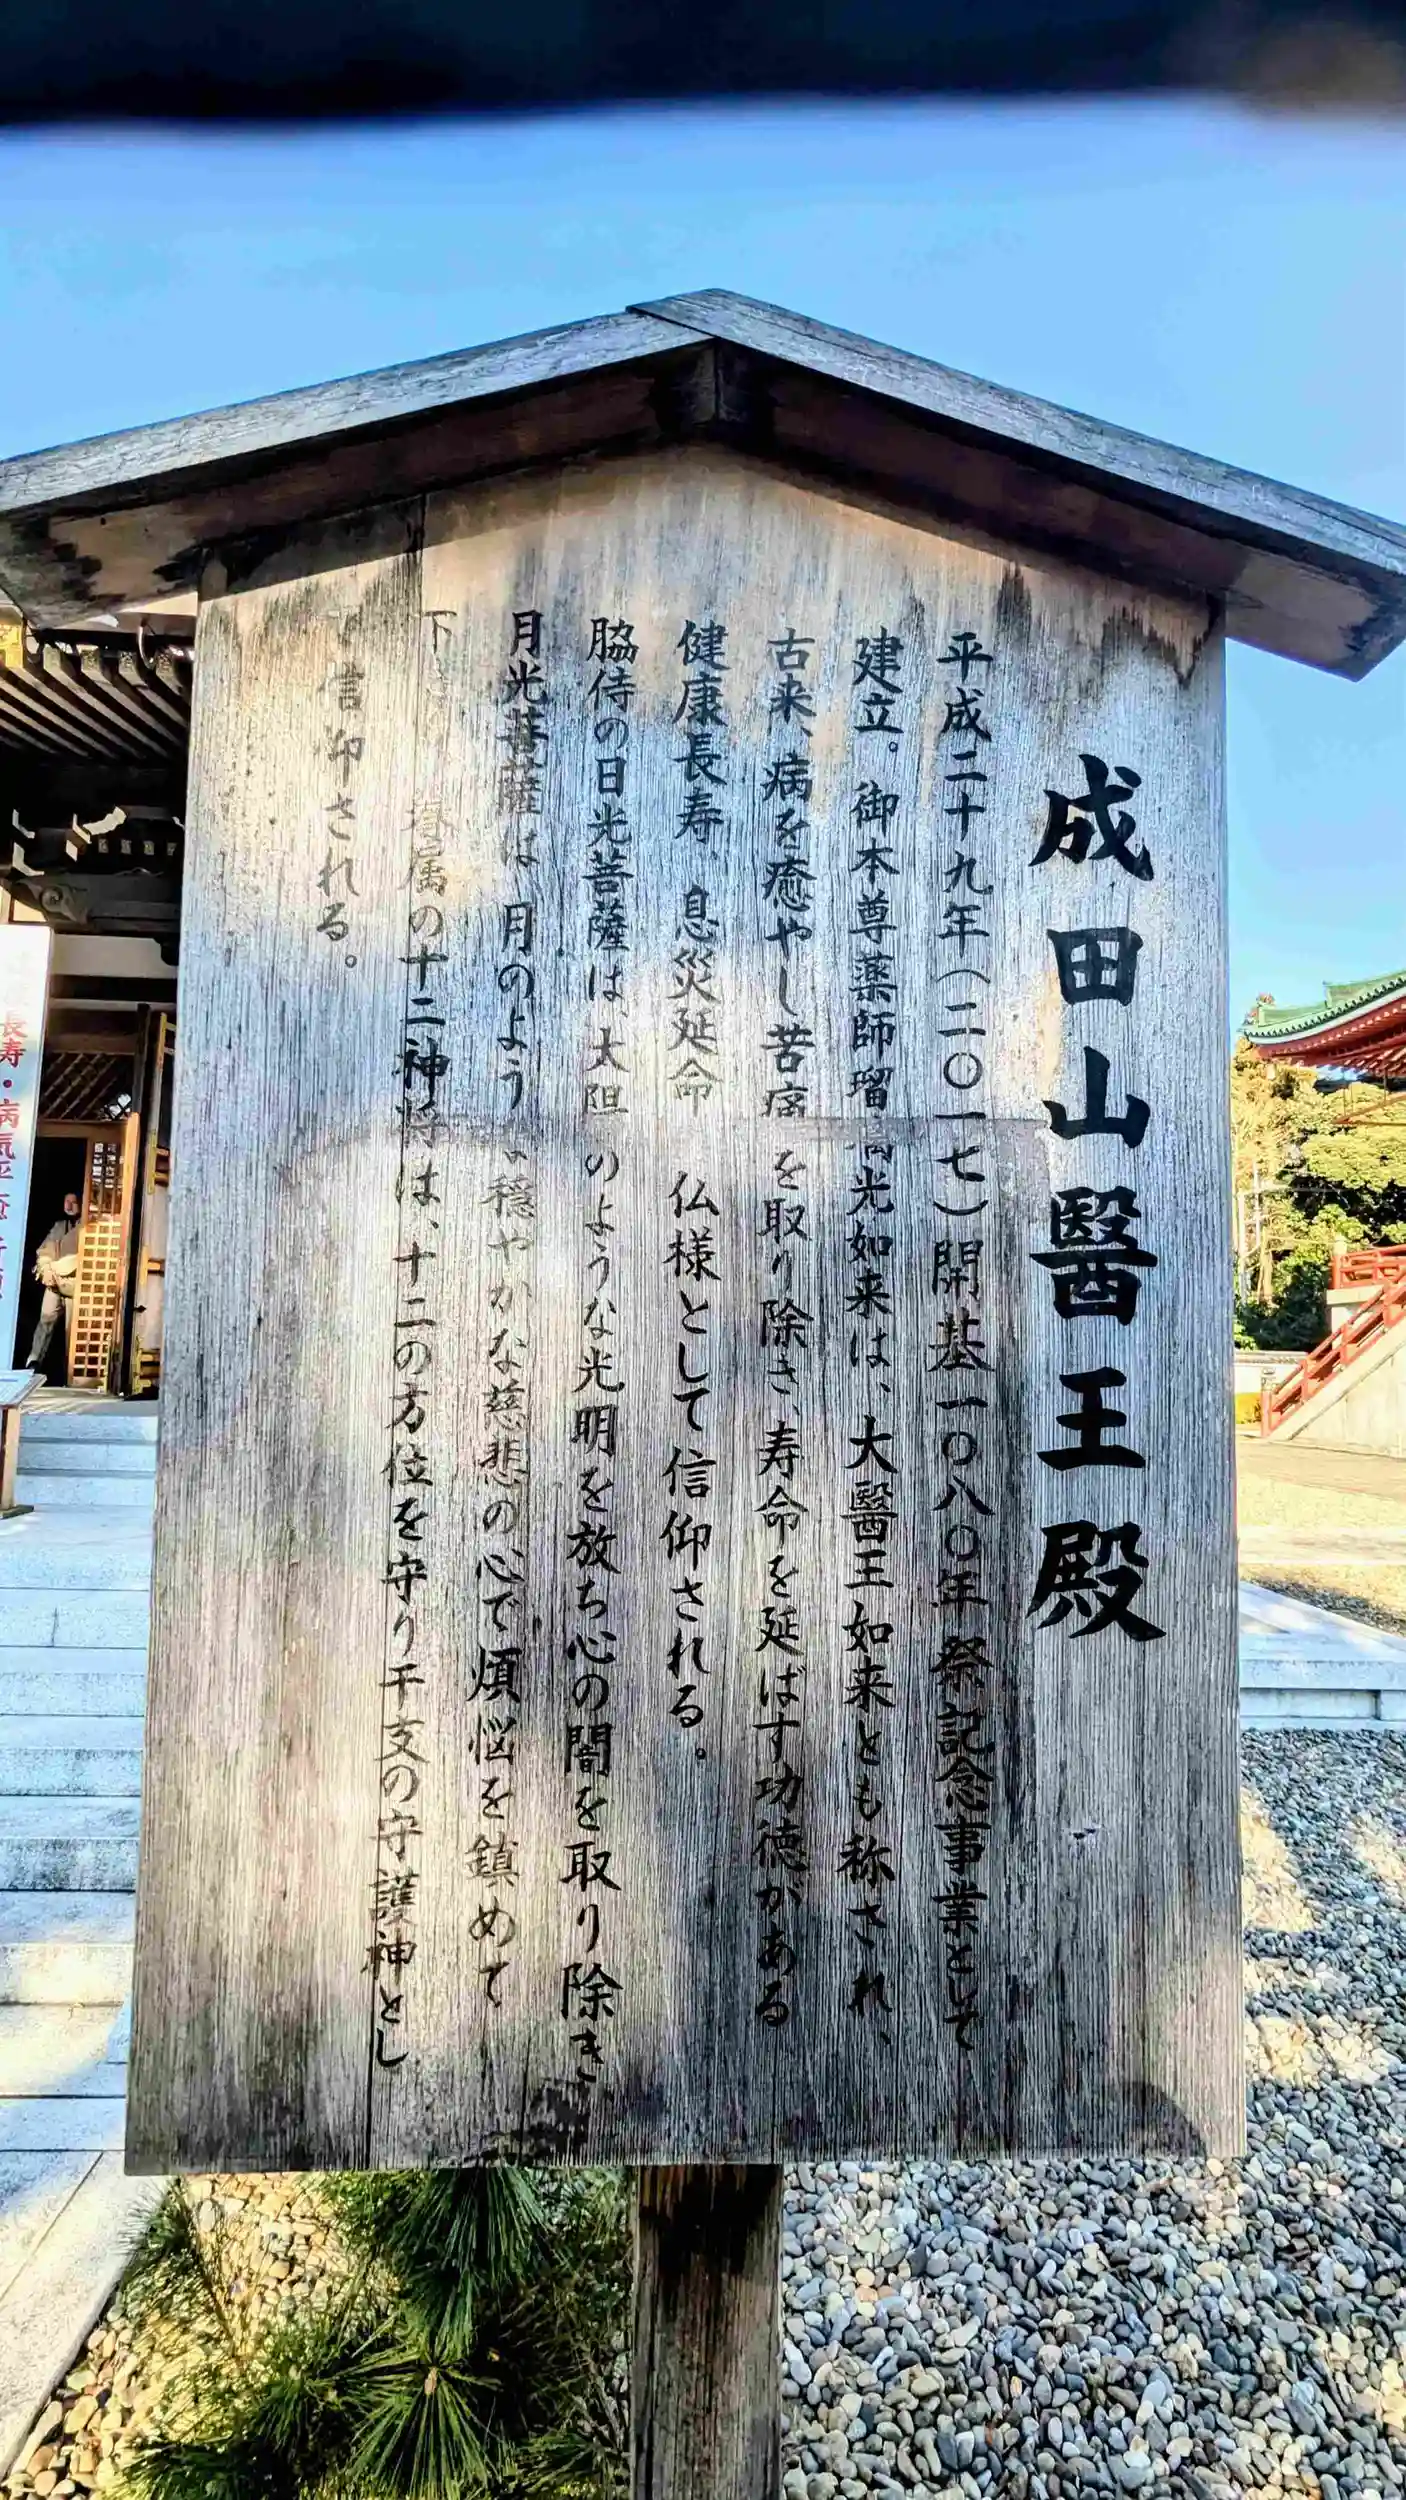 成田山醫王殿
平成二十九年(二〇一七)開基一〇八〇年祭記念事業として
建立。御本尊薬師瑠璃光如来は、大醫王如来とも称され、
古来、病を癒やし苦痛を取り除き、寿命を延ばす功徳がある
健康長寿、息災延命 仏様として信仰される。
脇侍の日光菩薩は、太陽のような光明を放ち心の闇を取り除き
月光菩薩は 月のよう 穏やかな慈悲の心で煩悩を鎮めて
下 眷属の十二神将は、十二の方位を守り干支の守護神とし
信仰される。
長寿・病気平癒